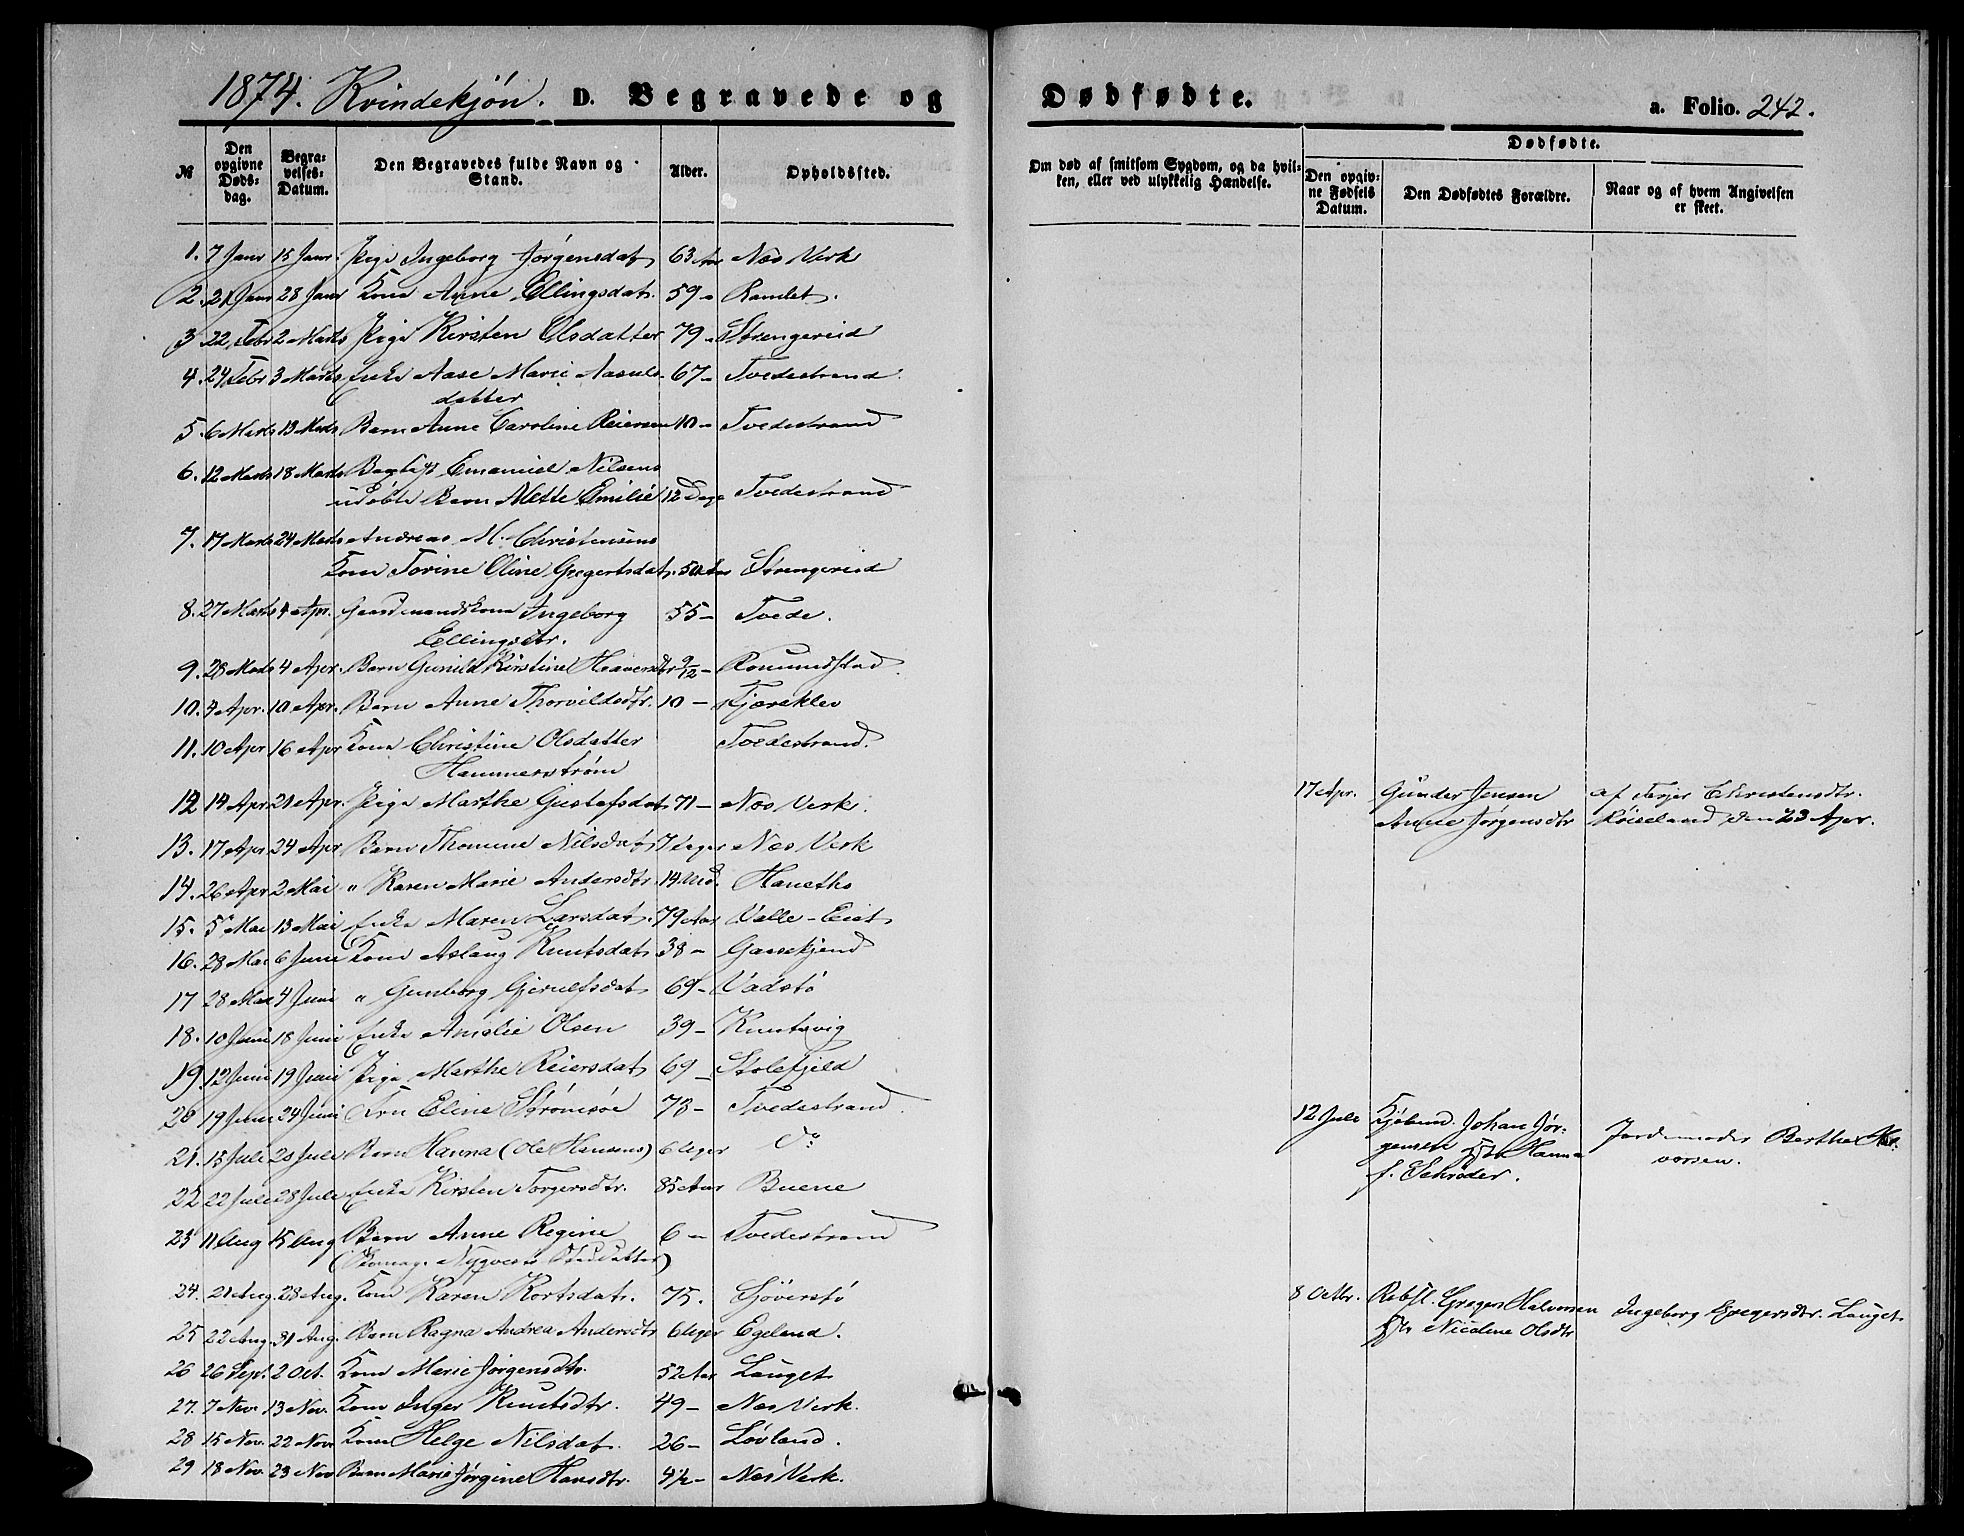 1874. Kvindekjøn. D. Begravede og Dødfødte. a. Folio. 242.
№ Den opgivne Døds-dag. Begra-velses-Datum. Den Begravedes fulde Navn og Stand. Alder. Opholdsted. Om død af smitsom Sygdom, og da hvil-ken, eller ved ulykkelig Hændelse. Dødfødte. Den opgiv-ne Fødsels Datum. Den Dødfødtes Forældre. Naar og af hvem Angivelsen er skeet.
1. 7 Janr 15 Janr. Pige Ingeborg Jørgensdat. 63 Aar Næs Verk
2. 21 Janr 28 Janr Kone Anne Ellingsdat. 59 - Ramlet.
3 22 Febr 2 Marts Pige Kirsten Olsdatter 79 - Strengereid
4. 24 Febr 3 Marts Enke Aase Marie Aasuls- 67 - Tvedestrand
datter
5. 6 Marts 13 Marts Barn Anne Caroline Reiersen 10 - Tvedestrand
6. 12 Marts 18 Marts Emanuel Nilsens
udøbte Barn Mette Emilie 12 Dage Tvedestrand
7. 17 Marts 24 Marts Andreas M. Christensens
Kone Torine Oline Gregertsdat. 50 Aar Strengereid
8. 27 Marts 4 Apr. Gaardmandskone Ingeborg 55 - Tvede.
Ellingsdtr.
9. 28 Marts 4 Apr. Barn Gunild Kirstine Haaversdtr 9/12 - Romundstad.
10. 4 Apr. 10 Apr. Barn Anne Thorvildsdtr. 10 - Kjæreklev
11. 10 Apr 16 Apr Kone Christine Olsdatter Tvedestrand.
Hammerstrøm
12 14 Apr 21 Apr. Pige Marthe Gustafsdat. 71 - Næs Verk. 17 Apr. Gunder Jensen af Terjer Christensdtr.
Anne Jørgensdtr Røiseland den 23 Apr.
13. 17 Apr 24 Apr Barn Thomine Nilsdat. 7 Uger Næs Verk
14. 26 Apr 2 Mai " Karen Marie Andersdtr. 14 Md. Haneths
15. 5 Mai 13 Mai Enke Maren Larsdat. 79 Aar Valle-Eiet
16. 28 Mai 6 Juni Kone Aslaug Knutsdat. 38 - Gaasekjend
17 28 Mai 4 Juni " Gunborg Gjerulfsdat. 69 - Vadstø
18. 10 Juni 18 Juni Enke Amalie Olsen 39 - Knutsvig
19. 12 Juni 19 Juni Pige Marthe Reiersdat. 69 - Stolefjeld
20 19 Juni 24 Juni Fru Eline Strømsøe 78 - Tvedestrand. 12 Juli Kjøbmd. Johan Jør-
gensen Hanna Jordemoder Berthe Hal-
f. Schrøder. vorsen.
21. 13 Juli 20 Juli Barn Hanna (Ole Hansens) 6 Uger Do
22 22 Juli 28 Juli Enke Kirsten Torgersdtr. 85 Aar Buene
23 11 Aug 15 Aug Barn Anne Regine 6 - Tvedestrand
(Skomag. Nyqvests datter)
24. 21 Aug. 28 Aug. Kone Karen Kortsdat. 75. Sjöverstø 8 Octbr. Rebsl. Greger Halvorsen Ingeborg Gregersdtr. Lauget
Nicoline Olsdtr
25 22 Aug. 31 Aug. Barn Ragna Andrea Andersdtr 6 Uger Egeland.
26 26 Sept. 2 Oct. Kone Marie Jørgensdtr. 52 Aar Lauget
27. 7 Nov. 13 Nov. Kone Inger Knutsdtr. 49 - Næs Verk.
28 15 Nov. 22 Nov Kone Helge Nilsdat. 26 - Løvland.
29 18 Nov. 23 Nov Barn Marie Jørgine Hansdtr. 4½ - Næs Verk.